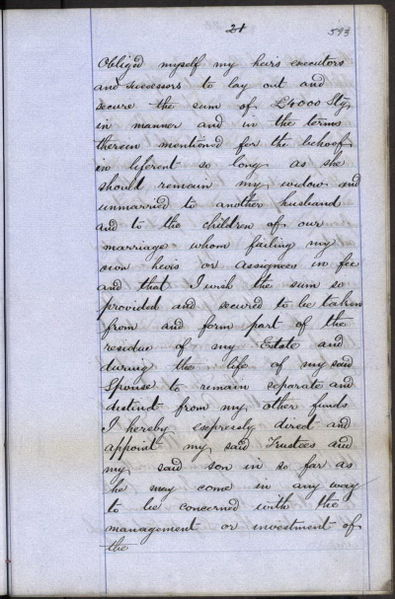 21
593
Obliged myself my heirs executors
and successors to lay out and
secure the sum of £4000 Stg,
in manner and in the terms
therein mentioned for the behoof
in liferent so long as she
should remain my widow and
unmarried to another husband
and to the children of our
marriage whom failing my
own heirs or assignees in fee
and that I wish the sum so
provided and secured to be taken
from and form part of the
residue of my Estate and
during the life of my said
Spouse to remain separate and
distinct from my other funds
I hereby expressly direct and
appoint my said Trustees and
my said son in so far as
he may come in any way
to be concerned with the
management or investment of
the